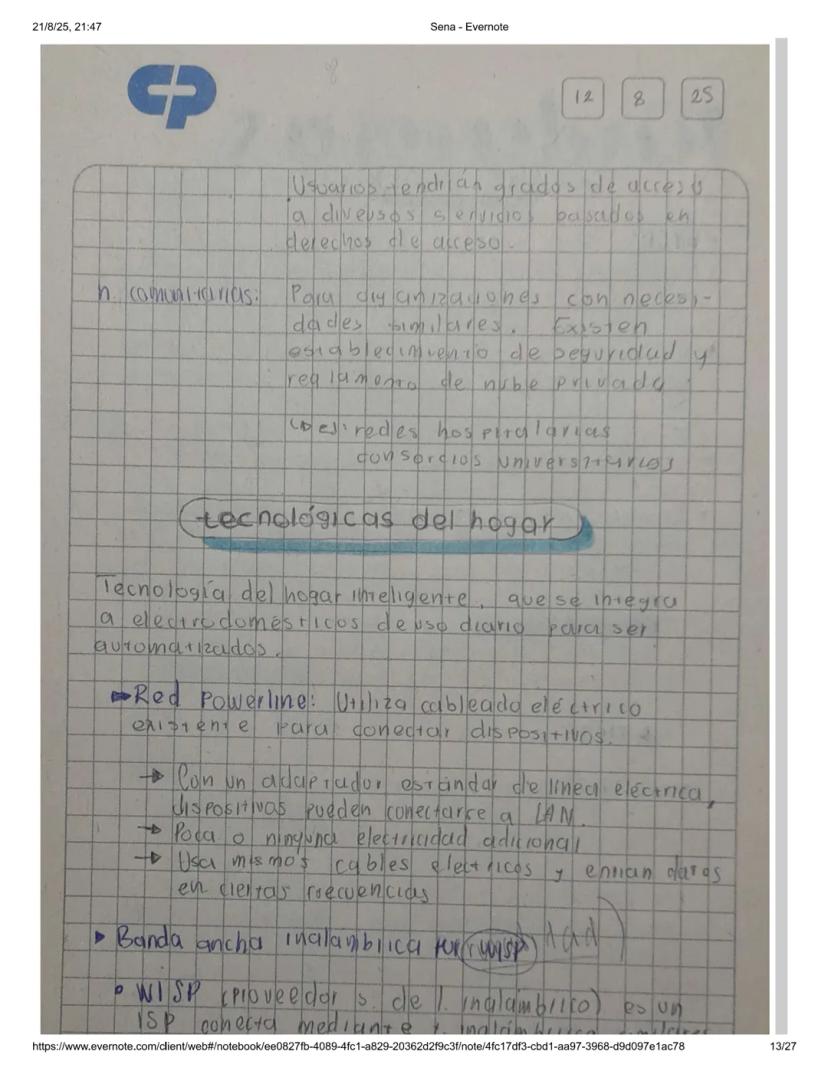 21/8/25, 21:47
Sena - Evernote
12 8 25
Usuarios tendrian grados de acceso
a diversos servidios basados en
derechos de acceso.
n. comunitarias: Para organizaciones con necesi-
dades similares. Existen
establecimiento de seguridad y
reglamento de nube privada
ej: redes hospitalarias
consorcios universitarios
tecnológicas del hogar
Tecnología del hogar inteligente, que se integra
a electrodomésticos de uso diario para ser
automatizados.
Red Powerline: Utiliza cableado eléctrico
existente para conectar dispositivos.
→ Con un adaptador estándar de linea eléctrica,
dispositivos pueden conectarse a LAN.
→ Poca o ninguna electricidad adicional
→ Usa mismos cables electricos y envian datos
en ciertas frecuencias
Banda ancha inalambrica (WISP)
• WISP (proveedor s. de I. inalámbrico) es un
ISP conecta mediante
https://www.evernote.com/client/web#/notebook/ee0827fb-4089-4fc1-a829-20362d2f9c3f/note/4fc17df3-cbd1-aa97-3968-d9d097e1ac78
13/27